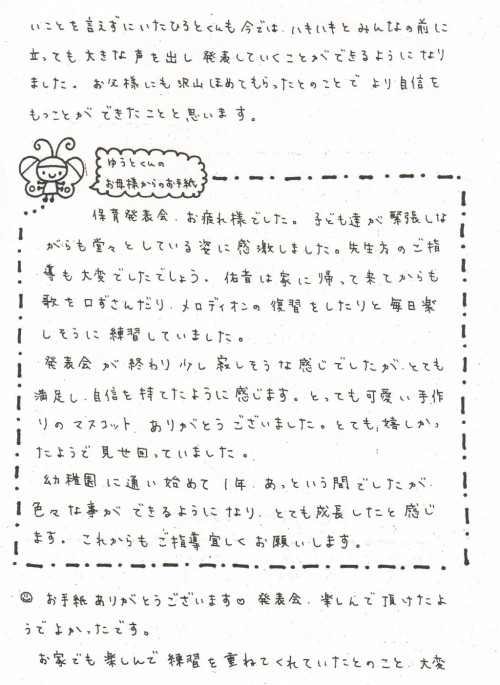 いことを言えずにいたひろとくんも今では、ハキハキとみんなの前に
立っても大きな声を出し発表していくことができるようになり
ました。お父様にも沢山ほめてもらったとのことでより自信を
もつことができたことと思います。
ゆうとくんの
お母様からのお手紙
保育発表会、お疲れ様でした。子ども達が緊張しな
がらも堂々としている姿に感激しました。先生方のご指
導も大変でしたでしょう。佑音は家に帰って来てからも
歌を口ずさんだり、メロディオンの復習をしたりと毎日楽
しそうに練習していました。
発表会が終わり少し寂しそうな感じでしたが、とても
満足し、自信を持てたように感じます。とっても可愛い手作
りのマスコット、ありがとうございました。とても嬉しかっ
たようで見せ回っていました。
幼稚園に通い始めて1年、あっという間でしたが、
色々な事ができるようになり、とても成長したと感じ
ます。これからもご指導宜しくお願いします。
お手紙ありがとうございます♡発表会、楽しんで頂けたよ
うでよかったです。
お家でも楽しんで練習を重ねてくれていたとのこと、大変